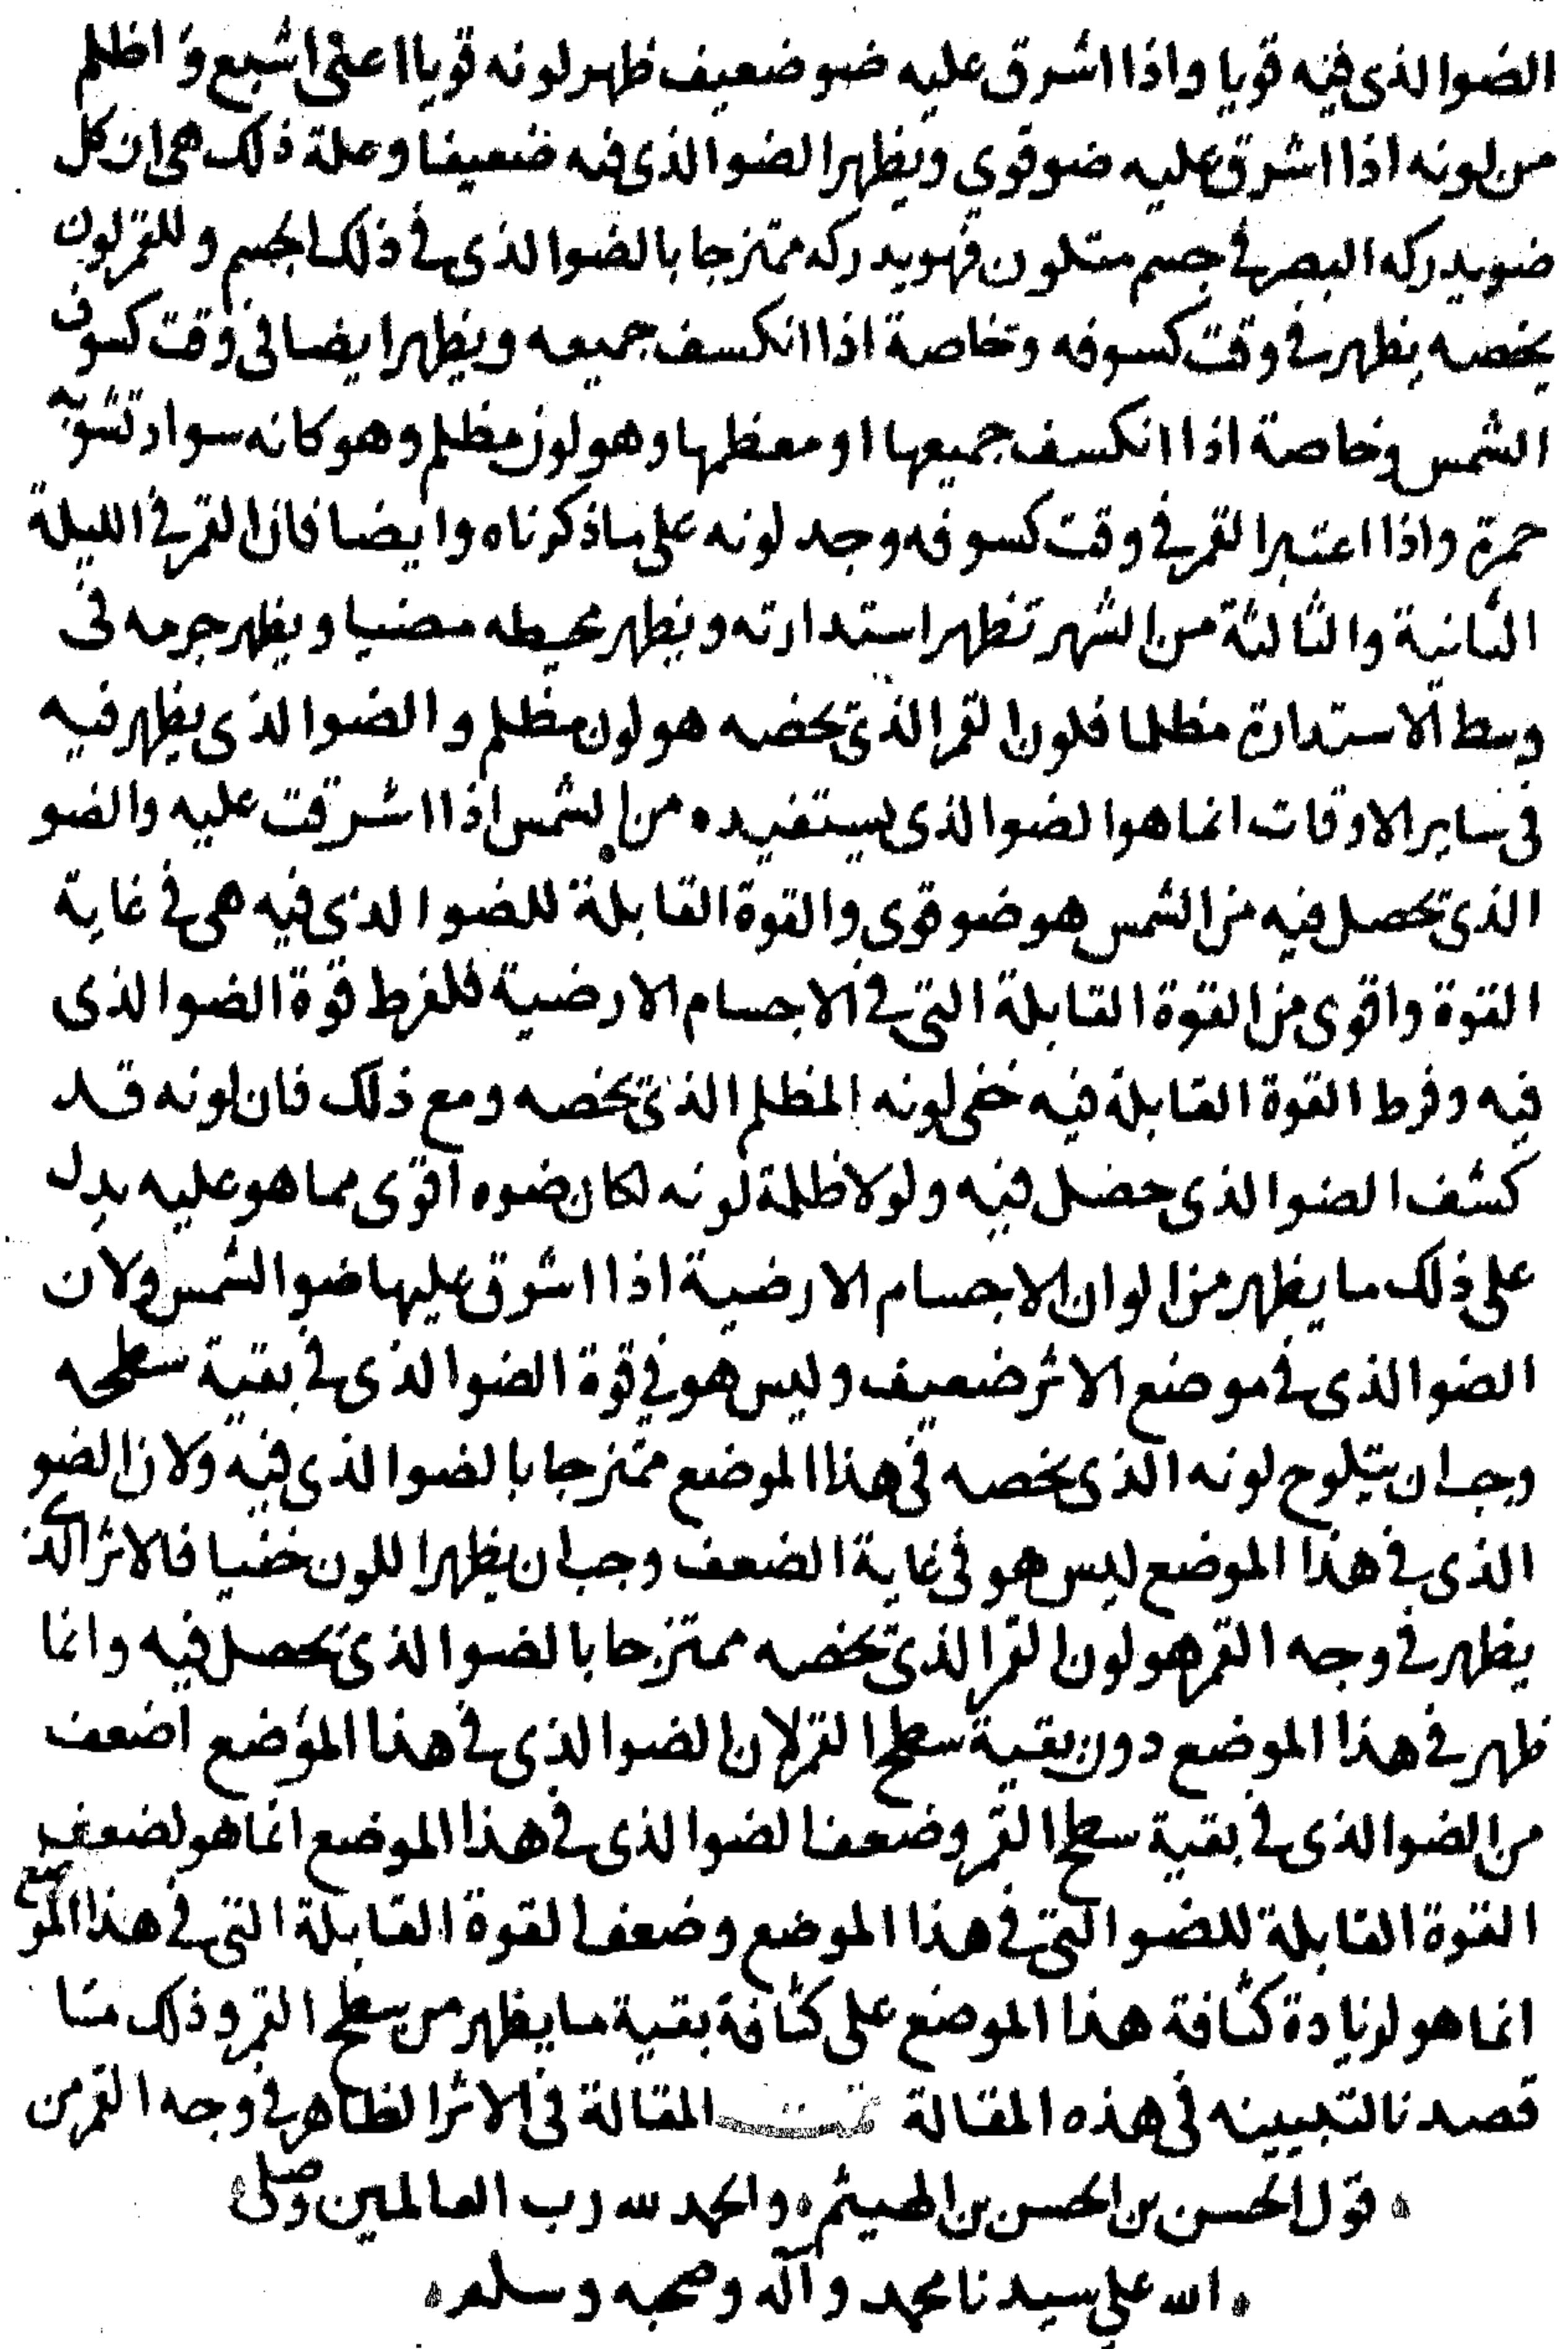 الضوا لذى فيه قويا واذا اشرق عليه ضو ضعيف ظهر لونه قويا اعنى اشبع و اظلم
من لونه اذا اشرق عليه ضو قوى ويظهر الضوا لذى فيه ضعيفا وعلة ذلك هى ان كل
ضو يدركه البصر فى جسم متلون فهو يدركه ممتزجا بالضوا لذى فى ذلك الجسم وللقمر لون
يخصه يظهر فى وقت كسوفه وخاصة اذا انكسف جميعه ويظهر ايضا فى وقت كسوف
الشمس وخاصة اذا انكسف جميعها او معظمها وهو لون مظلم وهو كانه سواد تشوبه
حمرة واذا اعتبر القمر فى وقت كسوفه وجد لونه على ما ذكرناه وايضا فان القمر فى الليلة
الثانية والثالثة من الشهر تظهر استدارته ويظهر محيطه مضيا ويظهر جرمه فى
وسط الاستدارة مظلما فلون القمر الذى يخصه هو لون مظلم والضوا لذى يظهر فيه
فى ساير الاوقات انما هو الضوا لذى يستفيده من الشمس اذا اشرقت عليه والضو
الذى يحصل فيه من الشمس هو ضو قوى والقوة القابلة للضوا لذى فيه هى فى غاية
القوة واقوى من القوة القابلة التى فى الاجسام الارضية فلفرط قوة الضوا لذى
فيه وفرط القوة القابلة فيه خفى لونه المظلم الذى يخصه ومع ذلك فان لونه قد
كشف الضوا لذى حصل فيه ولولا ظلمة لونه لكان ضوه اقوى مما هو عليه يدل
على ذلك ما يظهر من الوان الاجسام الارضية اذا اشرق عليها ضوا لشمس ولان
الضوا لذى فى موضع الاثر ضعيف وليس هو فى قوة الضوا لذى فى بقية سطحه
وجب ان يتلوح لونه الذى يخصه فى هذا الموضع ممتزجا بالضوا لذى فيه ولان الضو
الذى فى هذا الموضع ليس هو فى غاية الضعف وجب ان يظهر اللون خفيا فالاثر الذى
يظهر فى وجه القمر هو لون القمر الذى يخصه ممتزجا بالضوا لذى يحصل فيه وانما
ظهر فى هذا الموضع دون بقية سطح القمر لان الضوا لذى فى هذا الموضع اضعف
من الضوا لذى فى بقية سطح القمر وضعف الضوا لذى فى هذا الموضع انما هو لضعف
القوة القابلة للضو التى فى هذا الموضع وضعف القوة القابلة التى فى هذا الموضع
انما هو لزيادة كثافة هذا الموضع على كثافة بقية ما يظهر من سطح القمر وذلك ما
قصدنا لتبيينه فى هذه المقالة تمت المقالة فى الاثر الظاهر فى وجه القمر من
قول الحسن بن الحسن بن الهيثم والحمد لله رب العالمين وصلى
الله على سيدنا محمد وآله وصحبه وسلم